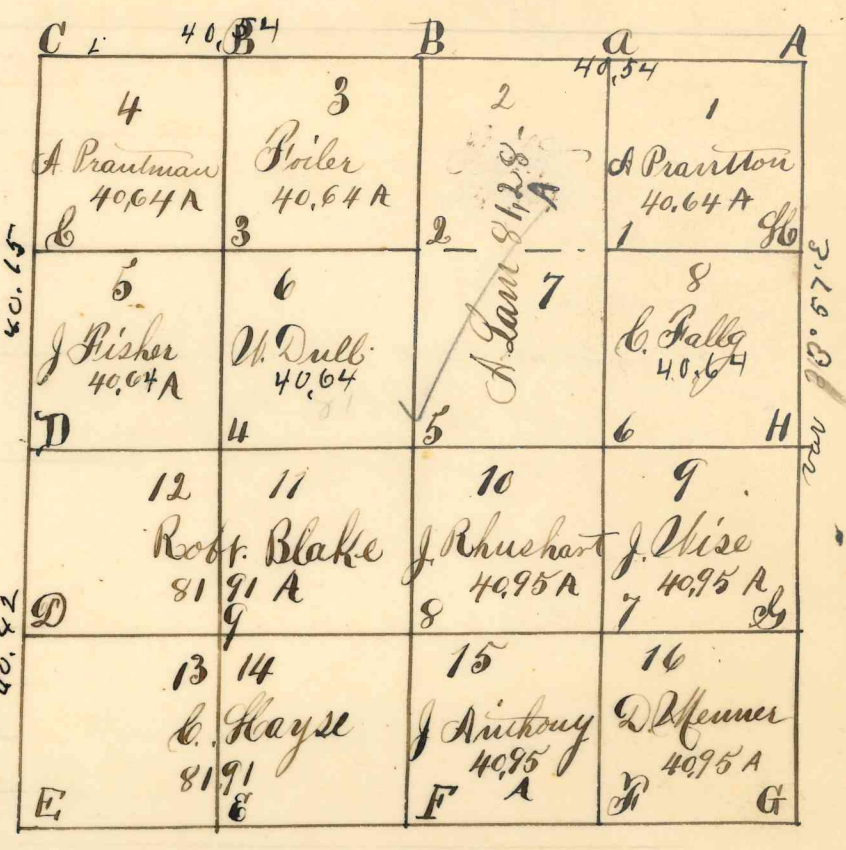 C 40,54 B B a A
40,54
4
A Prautman
40,64 A
E
3
Foiler
40,64 A
3
2
2
1
A Prantton
40.64 A
1 H
40.65
5
J Fisher
40,64 A
D
6
U. Dull
40,64
4
7
A Lam 81,28 A
5
8
C. Fallg
40.64
6 H
var
12 11
Robt. Blake
81 91 A
D 9
10
J. Rhushart
40,95 A
8
9
J. Wise
40,95 A
7 G
40.42
13 14
C. Hayse
81 91
E E
15
J Anthony
40,95
A
F
16
D. Menner
40,95 A
F G